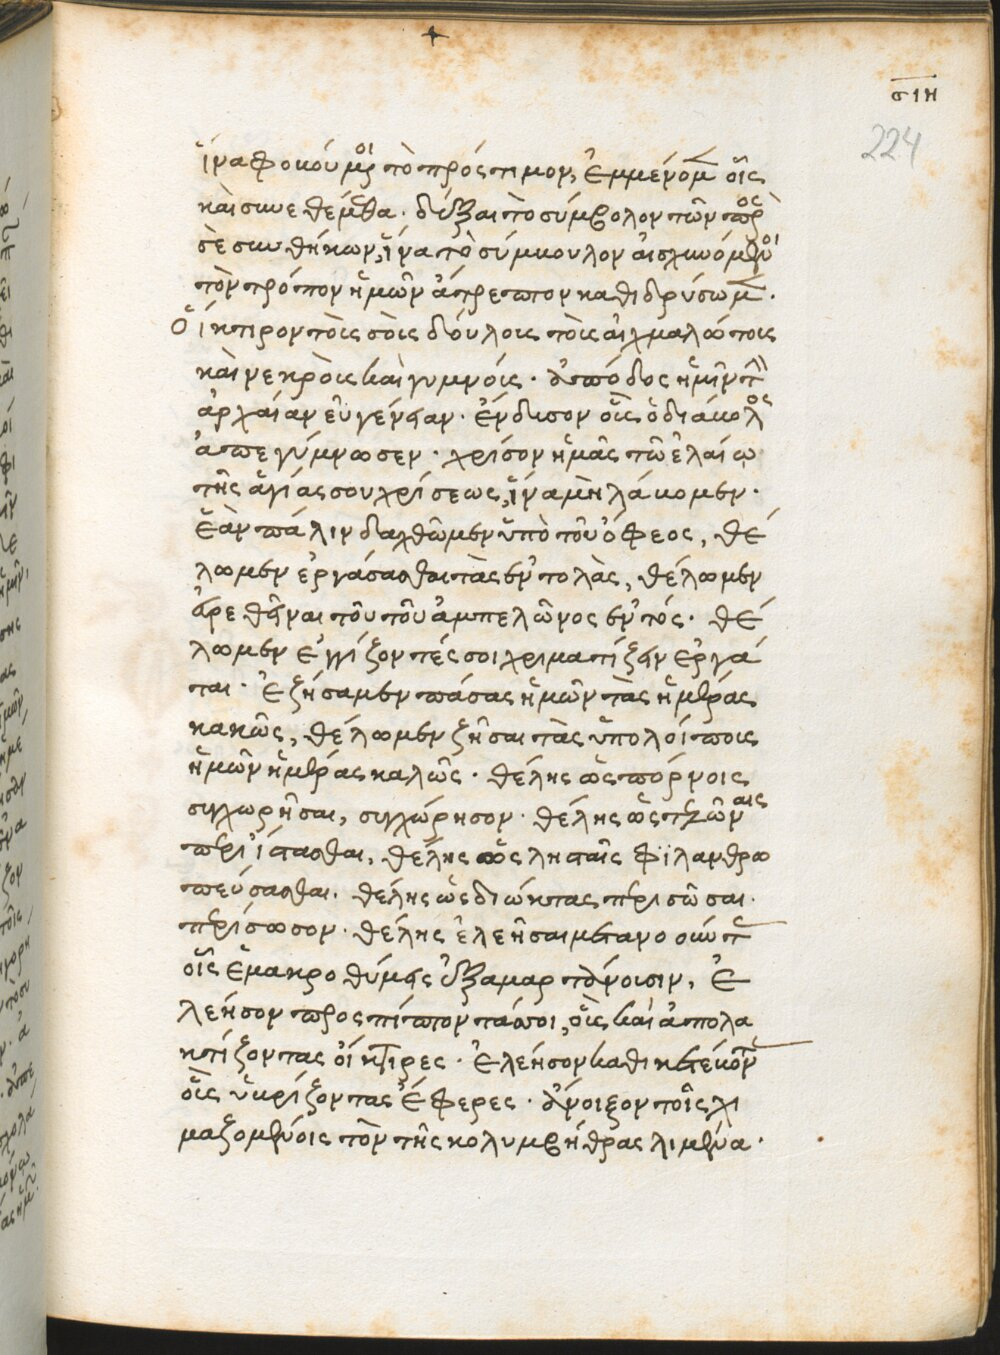 σιη
224
ἵνα φοκούμενοι τὸ πρόστιμον, ἐμμένωμεν οἷς
καὶ συνεθέμεθα. δίδαξαι τὸ σύμβολον τῶν πρὸς
σὲ συνθηκῶν, ἵνα τὸ σύμκουλον αἰσχυνόμενοι
τὸν τρόπον ἡμῶν ἀπρεπτον καθιδρύσωμεν.
Οἴκτιρον τοῖς σοῖς δούλοις τοῖς αἰχμαλώτοις
καὶ νεκροῖς καὶ γυμνοῖς. ἀπόδος ἡμῖν τὴν
ἀρχαίαν εὐγένειαν. ἔνδυσον οὓς ὁ διάκολος
ἀπεγύμνωσεν. χρίσον ἡμᾶς τῶ ἐλαίω
τῆς ἁγίας σου χρίσεως, ἵνα μὴ λάκομεν.
ἐὰν πάλιν διαχθῶμεν ὑπὸ τοῦ ὄφεος, θέ
λωμεν ἐργάσασθαι τὰς ἐντολὰς, θέλωμεν
εὑρεθῆναι τοῦ τοῦ ἀμπελῶνος ἐντός. θέ
λωμεν ἐγγίζοντές σοι χριματίζειν ἐργά
ται. ἐζήσαμεν πάσας ἡμῶν τὰς ἡμέρας
κακῶς, θέλωμεν ζῆσαι τὰς ὑπολοίποις
ἡμῶν ἡμέρας καλῶς. θέλης ὡς πόρνοις
συγχωρῆσαι, συγχώρησον. θέλης ὡς τελώναις
περιίστασθαι, θέλης ὡς λησταῖς φιλανθρω
πεύσασθαι. θέλης ὡς διώκτας περισῶσαι.
περίσωσον. θέλης ἐλεῆσαι μετανοοῦντας
οἷς ἐμακροθύμεις ἐξαμαρτάνοισιν, ἐ
λέησον προσπίπτοντάς σοι, οἷς καὶ ἀπολα
κτίζοντας οἴκτιρες. ἐλέησον καθικετεύοντας
οἷς ὑκρίζοντας ἔφερες. ἄνοιξον τοῖς χι
μαζομένοις τὸν τῆς κολυμβήθρας λιμένα.